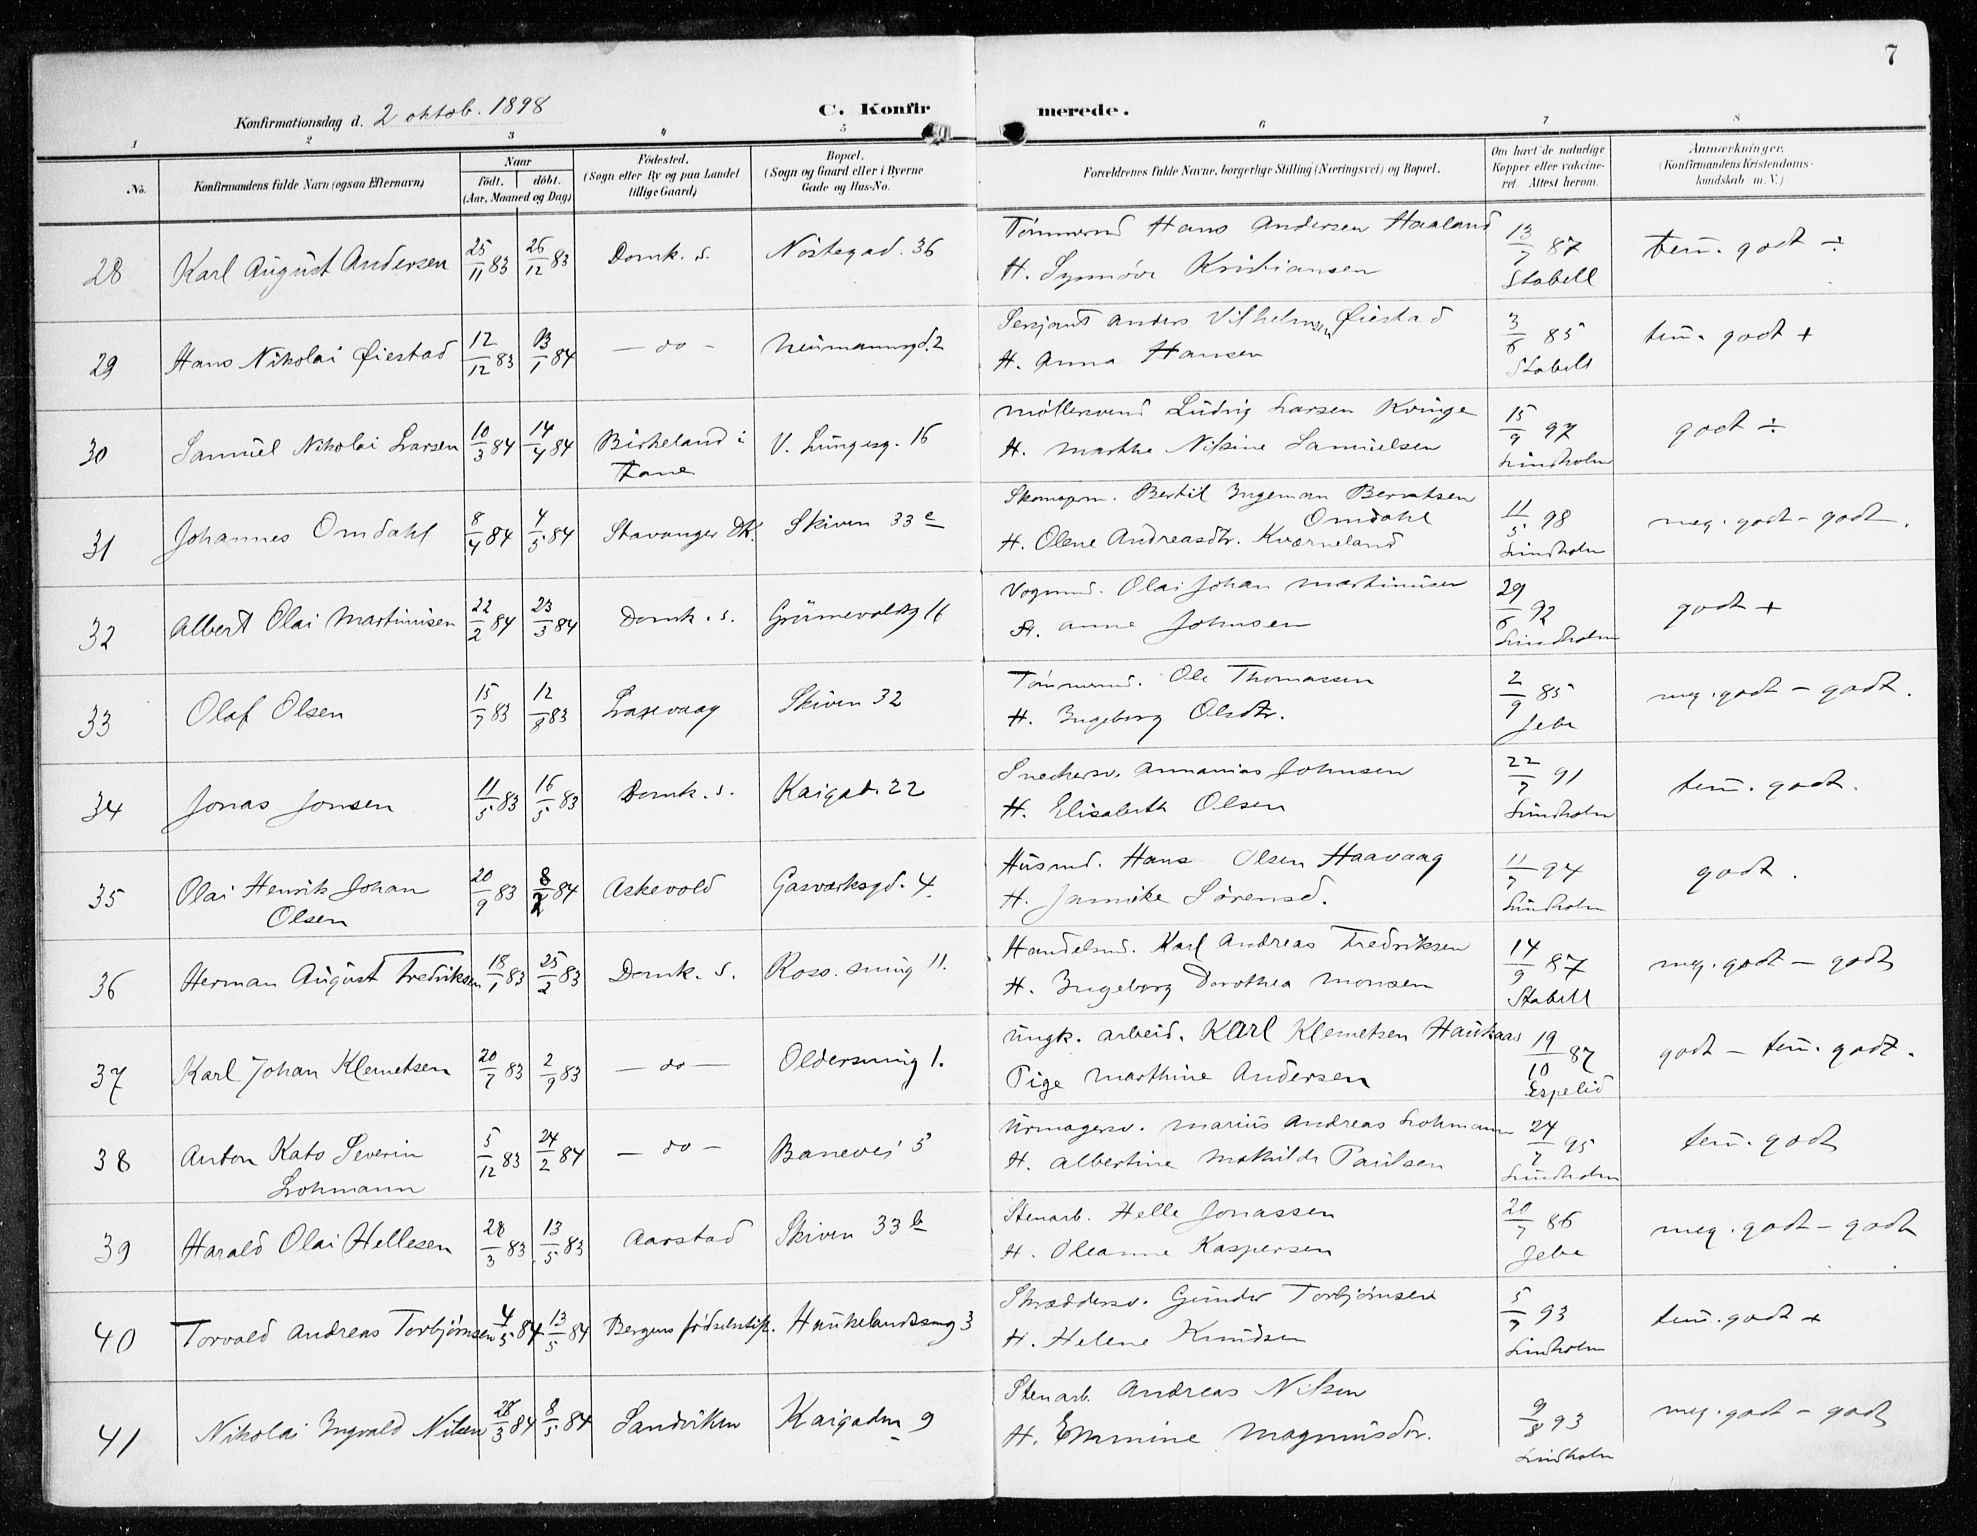 7
Konfirmationsdag d. 2 oktob. 1898
C. Konfirmerede.
1 2 3 4 5 6 7 8
No. Konfirmandens fulde Navn (ogsaa Efternavn) Naar Født. døbt. (Aar, Maaned og Dag) Fødested. (Sogn eller By og paa Landet tillige Gaard) Bopæl. (Sogn og Gaard eller i Byerne Gade og Hus-No. Forældrenes fulde Navne, borgerlige Stilling (Næringsvei) og Bopæl. Om havt de naturlige Kopper eller vakcineret. Attest herom. Anmærkninger. (Konfirmandens Kristendomskundskab m. V.)
28 Karl August Andersen 25/11 83 26/12 83 Domk. s. Nöstegad. 36 Tömmermd Hans Andersen Haaland
H. Synnöve Kristiansen 13/7 87 Stabell tem. godt ÷
29 Hans Nikolai Øiestad 12/12 83 13/1 84 — do — Neumannsgd. 2 Sersjant Anders Vilhelmsen Øiestad
H. Anna Hansen 3/6 85 Stabell tem. godt +
30 Samuel Nikolai Larsen 10/3 84 14/4 84 Birkeland i Fane V. Lungesg. 16 Møllersvend Ludvig Larsen Kvinge
H. Marthe Nilsine Samuelsen 15/9 97 Lindholm godt ÷
31 Johannes Omdahl 8/4 84 4/5 84 Stavanger Dk. Skiven 33 c Skomagerm. Bertil Ingeman Berntsen Omdahl
H. Olene Andreasdtr. Kværneland 11/5 98 Lindholm meg. godt – godt.
32 Albert Olai Martinusen 22/2 84 23/3 84 Domk. s. Grünevoldsg 16 Vognmd. Olai Johan Martinusen
H. Anne Johnsen 29/6 92 Lindholm godt +
33 Olaf Olsen 15/7 83 12/8 83 Laxevaag Skiven 32 Tömmermd. Ole Thomassen
H. Ingeborg Olsdtr. 2/9 85 Jebe meg. godt – godt.
34 Jonas Jonsen 11/5 83 16/5 83 Domk. s. Kaigad. 22 Snedkersv. Annanias Johnsen
H. Elisabeth Olsen 22/7 91 Lindholm tem. godt.
35 Olai Henrik Johan Olsen 20/9 83 8/2 84 Askevold Gasværksgd. 4. Husmd. Hans Olsen Haavaag
H. Jannike Sørensd. 11/7 94 Lindholm godt.
36 Herman August Fredriksen 18/1 83 25/2 83 Domk. s. Ross. smug 11. Handelsmd. Karl Andreas Fredriksen
H. Ingeborg Dorothea Monsen 14/9 87 Stabell meg. godt – godt
37 Karl Johan Klemetsen 20/7 83 2/9 83 — do — Oldersmug 1. Ungk. arbeid. Karl Klemetsen Haukaas
Pige Marthine Andersen 19/10 87 Espelid godt – tem. godt.
38 Anton Kato Severin Lohmann 5/12 83 24/2 84 — do — Banevei 5 Urmagersv. Marius Andreas Lohmann
H. Albertine Mathilde Paulsen 24/7 95 Lindholm tem. godt
39 Harald Olai Hellesen 28/3 83 13/5 83 Aarstad Skiven 33 b Stenarb. Helle Jonassen
H. Oleanne Kaspersen 20/7 86 Jebe meg. godt – godt
40 Torvald Andreas Torbjørnsen 4/5 84 13/5 84 Bergens födselsstift. Haukelandssmug 3 Skræddersv. Gunder Torbjørnsen
H. Helene Knudsen 5/7 93 Lindholm tem. godt +
41 Nikolai Ingvald Nilsen 28/3 84 8/5 84 Sandviken Kaigaden 9 Stenarb. Andreas Nilsen
H. Emmine Magnusdtr. 9/8 93 Lindholm meg. godt – godt